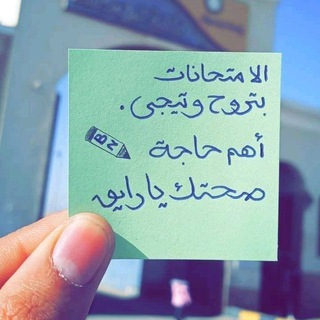 الامتحانات
بتروح وتيجى.
أهم حاجة
صحتك يا رايق